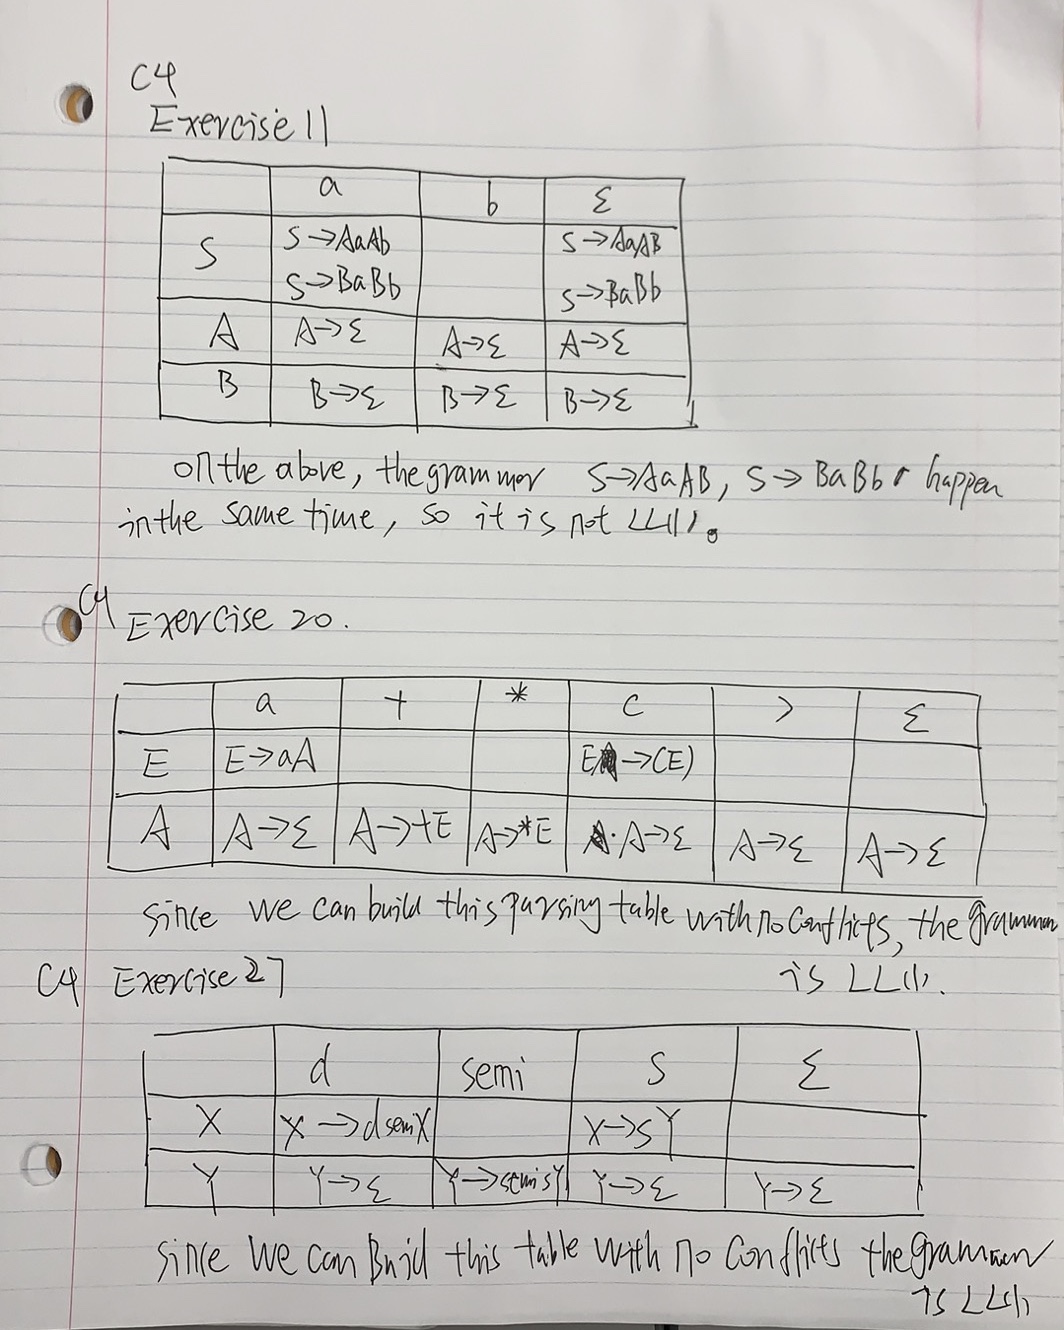 C4
Exercise 11
a b ε
S S→AaAb S→AaAB
S→BaBb S→BaBb
A A→ε A→ε A→ε
B B→ε B→ε B→ε
on the above, the grammor S→AaAB, S→BaBb happen
in the same time, so it is not LL(1).
C4 Exercise 20.
a + * ( ) ε
E E→aA E→(E)
A A→ε A→+E A→*E A→ε A→ε A→ε
since we can build this parsing table with no conflicts, the grammar
is LL(1).
C4 Exercise 27
d semi S ε
X X→d semi X X→sY
Y Y→ε Y→semisY Y→ε Y→ε
since we can Buid this table with no conflicts the grammar
is LL(1)